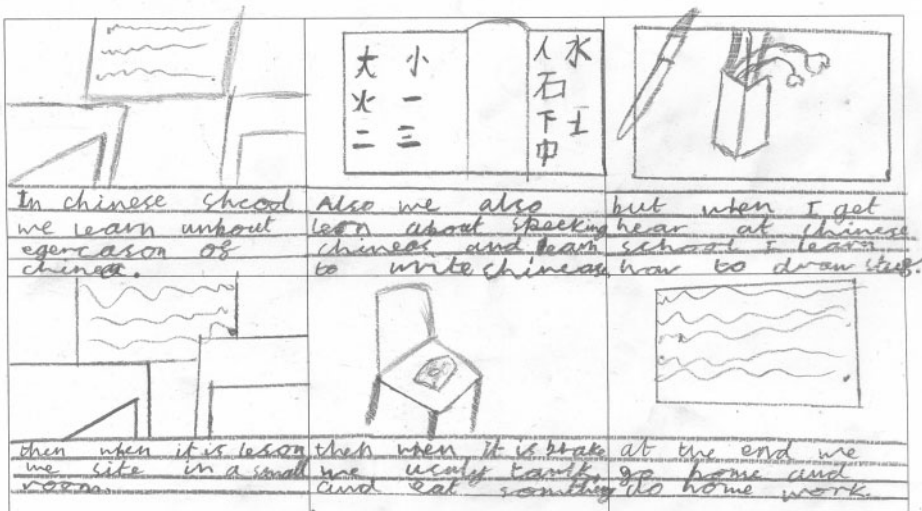 大 小
火 一
二 三
人 水
石
下 士
中
In chinese shcool
we learn unbout
egercason of
Also we also
lern about specking
chineas and learn
to write chineas
but when I get
hear at chinese
school I learn
how to draw stuf.
then when it is leson
we site in a small
room.
then when It is brake
we usuly tantk
and eat somthing
at the end we
go home and
do home work.